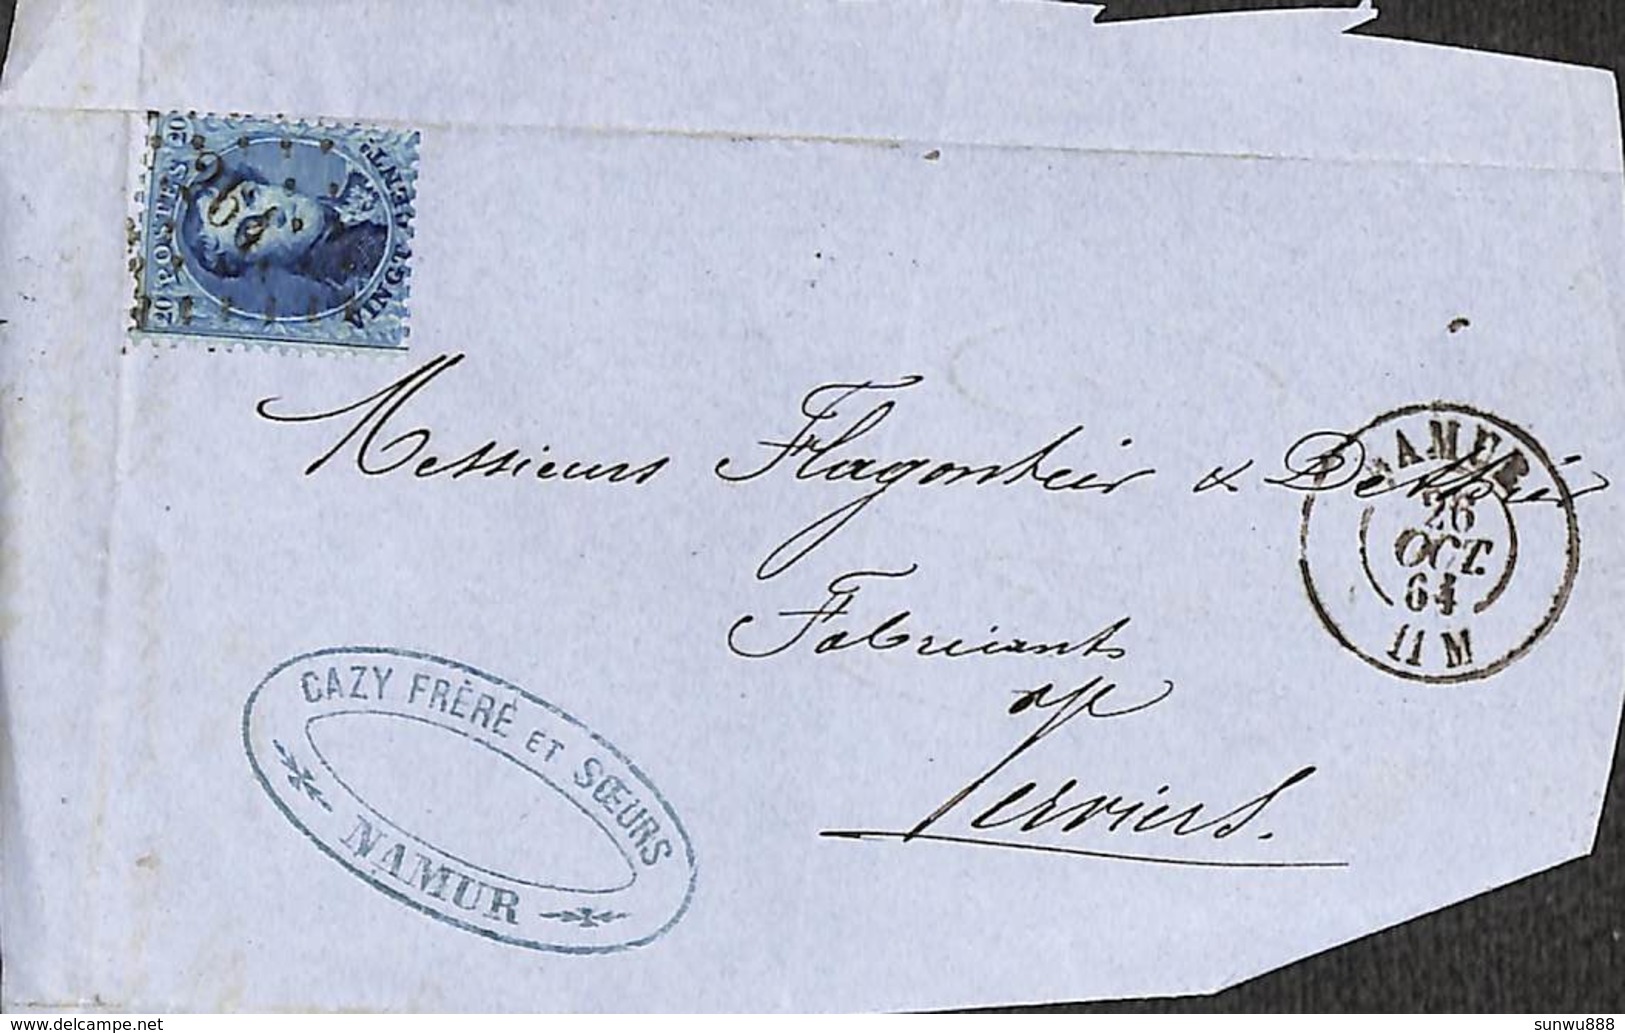 POSTES
20
20
VINGT CENTS
264
Messieurs Flagontier & Dethier
NAMUR
26
OCT.
64
11 M
Fabricants
Verviers.
CAZY FRÈRE ET SŒURS
NAMUR
© delcampe.net
sunwu888